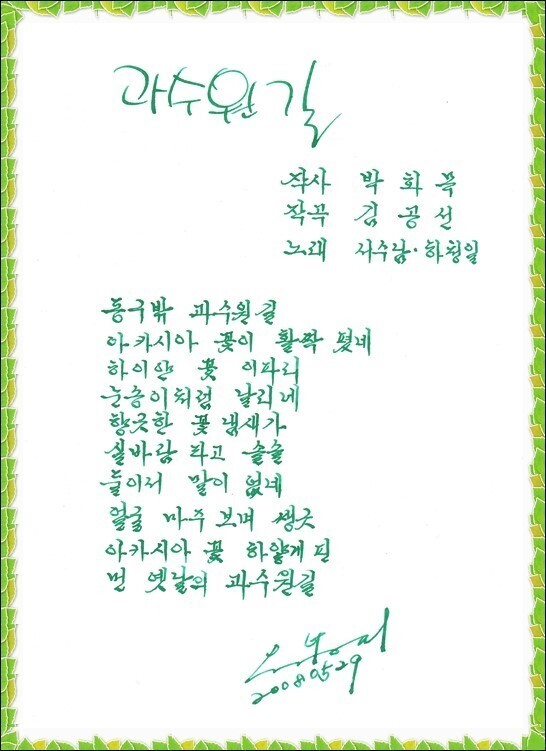 과수원길
작사 박화목
작곡 김공선
노래 서수남·하청일
동구밖 과수원길
아카시아 꽃이 활짝 폈네
하이얀 꽃 이파리
눈송이처럼 날리네
향긋한 꽃 냄새가
실바람 타고 솔솔
둘이서 말이 없네
얼굴 마주 보며 생긋
아카시아 꽃 하얗게 핀
먼 옛날의 과수원길
2008.05.29